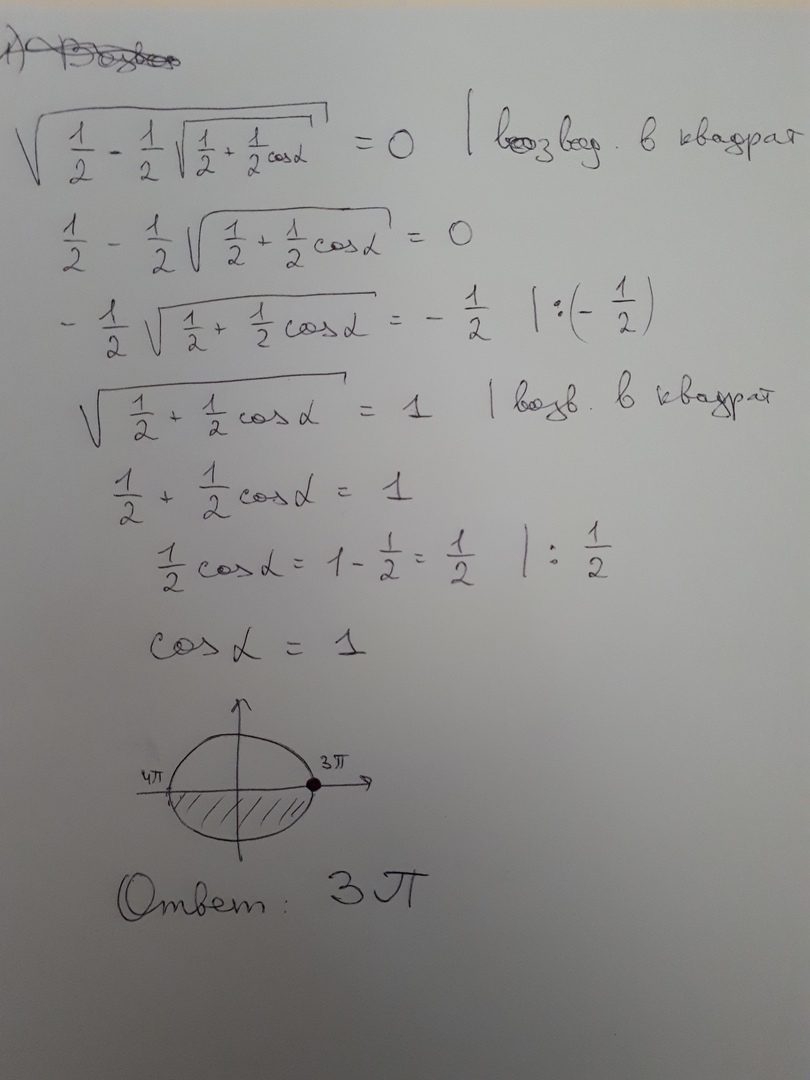 1)
√(1/2 - 1/2 √(1/2 + 1/2 cosα)) = 0 | возвод. в квадрат
1/2 - 1/2 √(1/2 + 1/2 cosα) = 0
- 1/2 √(1/2 + 1/2 cosα) = - 1/2 | :(- 1/2)
√(1/2 + 1/2 cosα) = 1 | возв. в квадрат
1/2 + 1/2 cosα = 1
1/2 cosα = 1 - 1/2 = 1/2 | : 1/2
cosα = 1
4π 3π
Ответ: 3π